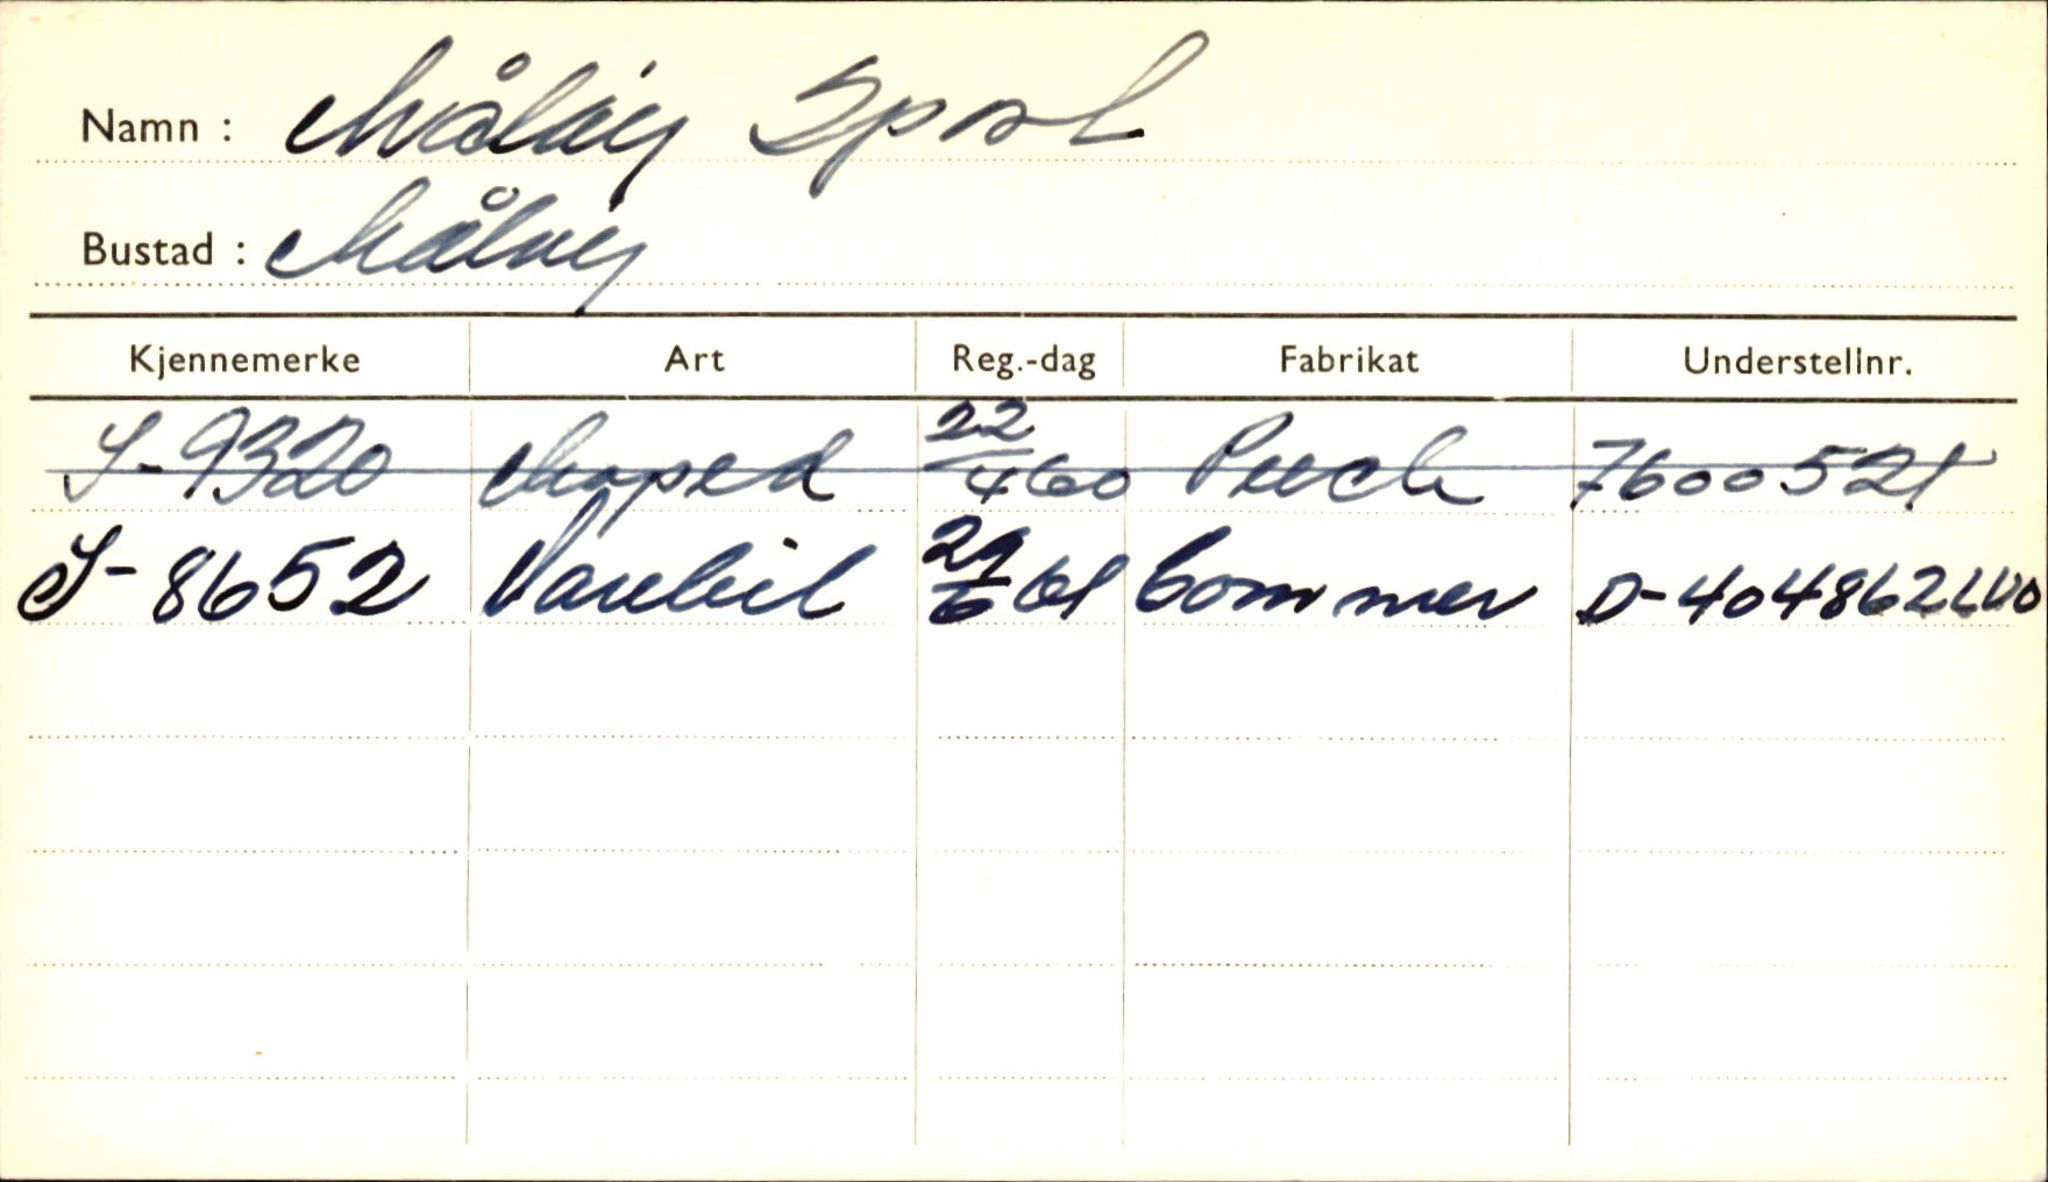 Namn : Måløy Sport
Bustad : Måløy
Kjennemerke Art Reg.-dag Fabrikat Understellnr.
S-9320 Moped 22/4 60 Puch 7600521
S-8652 Varebil 29/6 61 Commer D-404862LVO